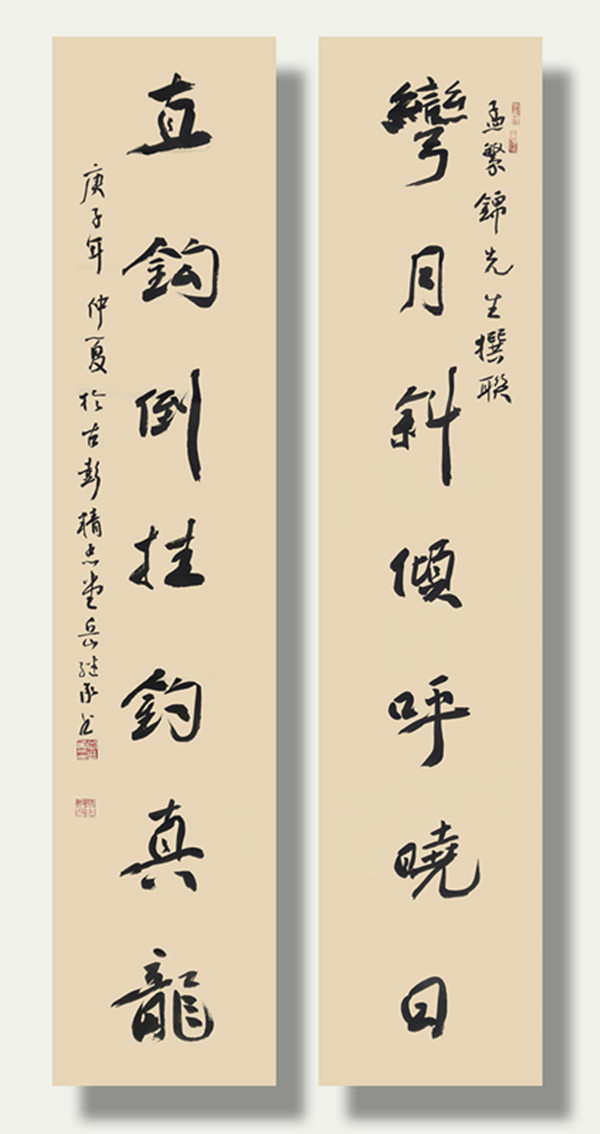 孟繁錦先生撰聯
彎月斜傾呼曉日
直鈎倒挂釣真龍
庚子年仲夏於古彭精忠堂岳继承书